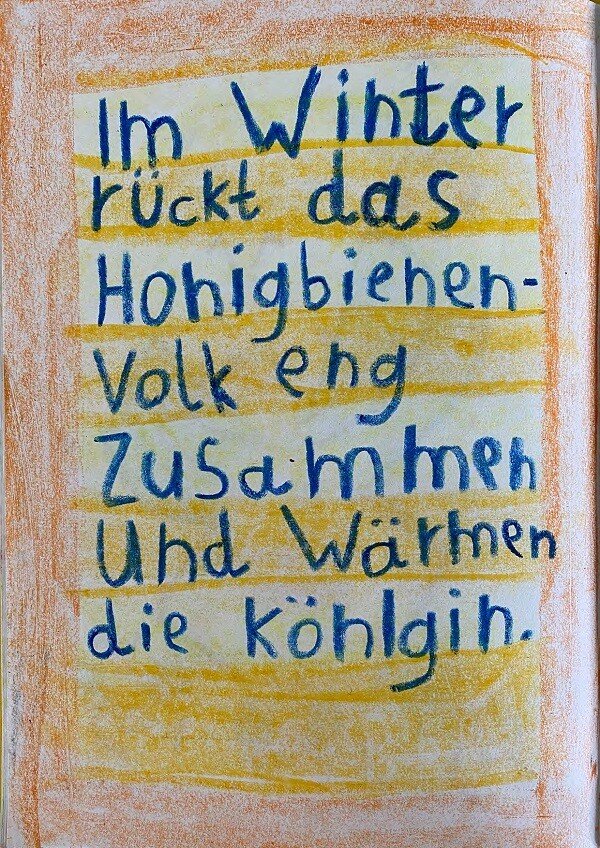 Im Winter
rückt das
Honigbienen-
Volk eng
Zusammen
Und Wärmen
die königin.